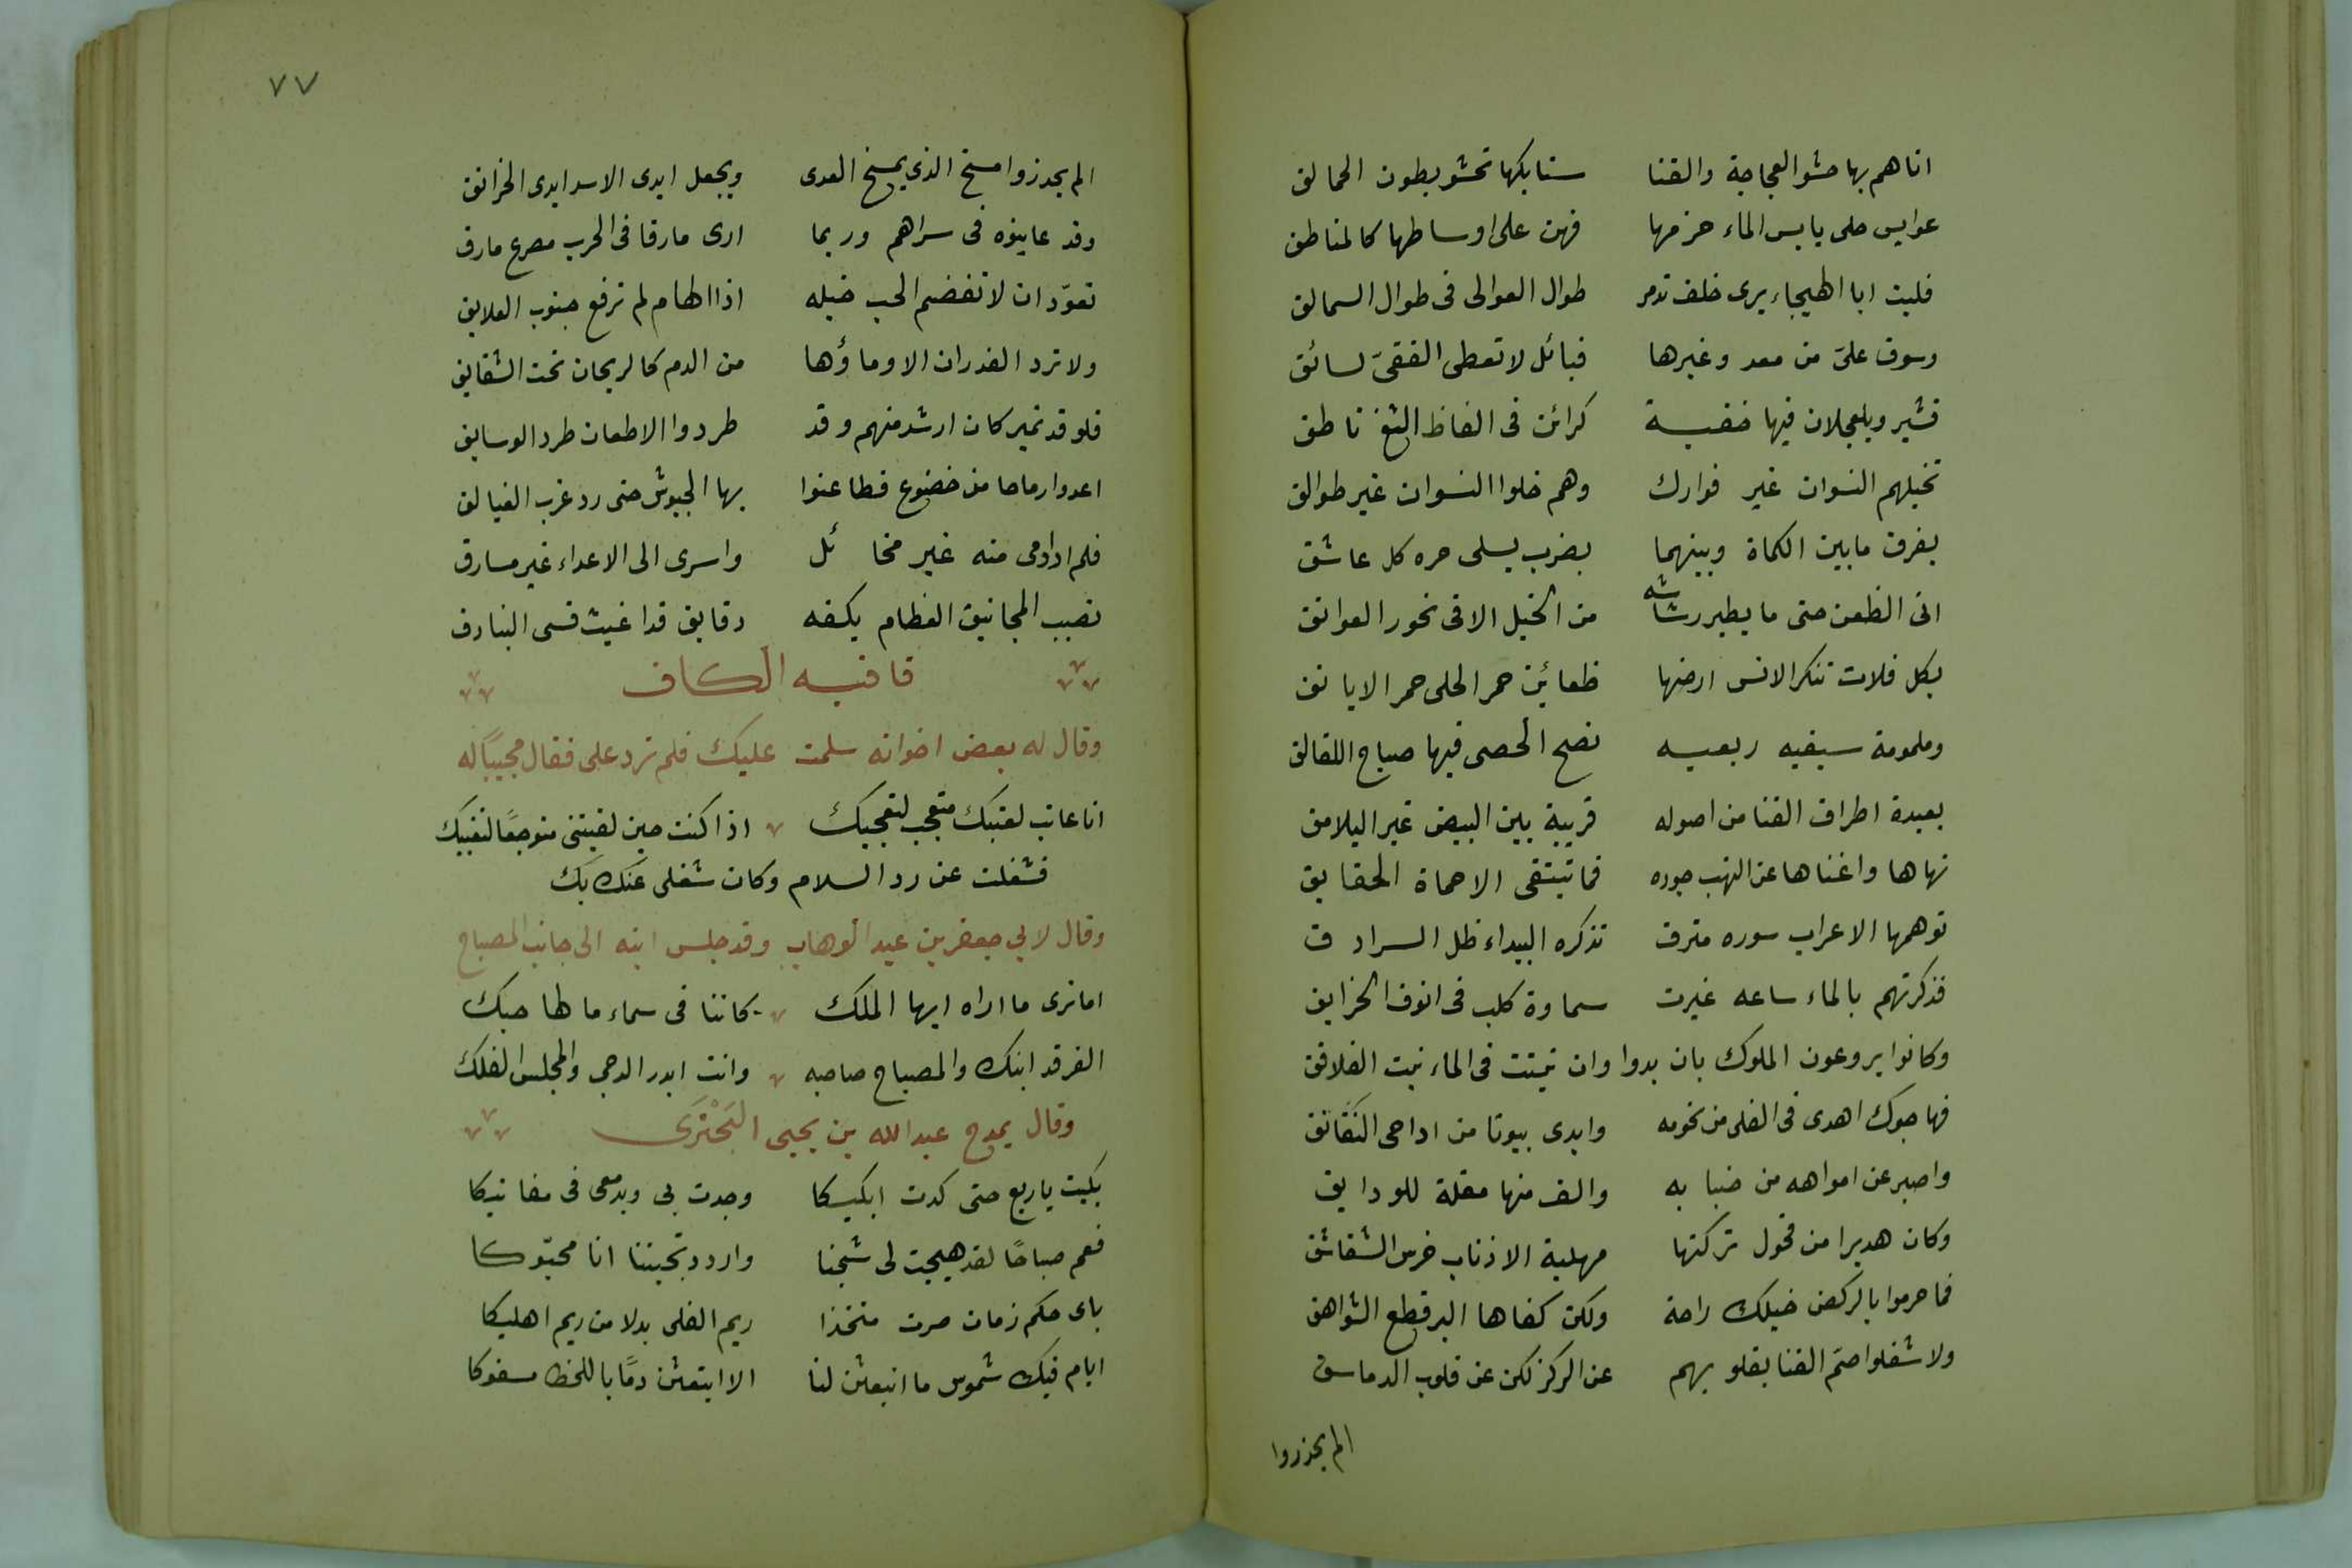 اتاهم بها حشو العجاجة والقنا سنابكها تحشو بطون الحمالق
عوابس حلى يابس الماء حزمها فهن على اوساطها كالمناطق
فليت ابا الهيجاء يرى خلف تدمر طوال العوالى فى طوال السمالق
وسوق علىّ من معد وغيرها قبائل لا تعطى القفىّ لسائق
قشير وبلعجلان فيها خفية كرائن فى الفاظ الثغ ناطق
تخيلهم النسوان غير فوارك وهم خلوا النسوان غير طوالق
يفرق ما بين الكماة وبينهما بضرب يسلى حره كل عاشق
اتى الظعن حتى ما يطير رشاشه من الخيل الا فى نحور العواتق
بكل فلات تنكر الانس ارضها ظعائن حمر الحلى حمر الايانق
وملمومة سيفيه ربعيه تصح الحصى فيها صياح اللقالق
بعيدة اطراف القنا من اصوله قريبة بين البيض غير اليلامق
نهاها واغناها عن النهب جوده فما تبتقى الا حماة الحقايق
توهمها الاعراب سوره مترف تذكره البيداء ظل السرادق
فذكرتهم بالماء ساعه غبرت سماوة كلب فى انوف الخزايق
وكانوا يروعون الملوك بان بدوا وان نبتت فى الماء نبت الغلافق
فهاجوك اهدى فى الفلى من نجومه وابدى بيوتا من اداحى النَقَانق
واصبر عن امواهه من ضبابه والف منها مقلة للودايق
وكان هديرا من فحول تركتها مهلبة الاذناب خرس الشقاشق
فما حرموا بالركض خيلك راحة ولكن كفاها البر قطع الشواهق
ولا شغلوا صمّ القنا بقلوبهم عن الركز لكن عن قلوب الدماسق
الم يحذروا
٧٧
الم يحذروا مسخ الذى يمسخ العدى ويجعل ايدى الاسد ايدى الخرانق
وقد عاينوه فى سراهم وربما ارى مارقا فى الحرب مصرع مارق
تعوّد ان لا تقضم الحب خيله اذا الهام لم ترفع جنوب العلايق
ولا ترد الغدران الا وماؤها من الدم كالريحان تحت الشقايق
فلو قد نمير كان ارشد منهم وقد طردوا الاطعان طرد الوسايق
اعدوا رماحا من خضوع فطاعنوا بها الجيوش حتى رد غرب الفيالق
فلم ار ارمى منه غير مخاتل واسرى الى الاعداء غير مسارق
تصيب المجانيق العظام بكفه دقايق قد اعيت قسى البنادق
قافيه الكاف
وقال له بعض اخوانه سلمت عليك فلم ترد على فقال مجيباً له
انا عاتب لعتبك متعجب لتعجبك اذا كنت حين لقيتنى متوجعًا لتغيبك
فشغلت عن رد السلام وكان شغلى عنك بك
وقال لابي جعفر بن عبد الوهاب وقد جلس ابنه الى جانب المصباح
اما ترى ما اراه ايها الملك كاننا فى سماء ما لها حبك
الفرقد ابنك والمصباح صاحبه وانت ابدر الدجى والمجلس الفلك
وقال يمدح عبدالله بن يحيى البَحْتَرى
بكيت يا ربع حتى كدت ابكيكا وجدت بى وبدمعى فى مغانيكا
فعم صباحًا لقد هيجت لى شجنا واردد تحيتنا انا محيّوكا
باى حكم زمان صرت متخذا ريم الفلى بدلا من ريم اهليكا
ايام فيك شموس ما انبعثن لنا الا ابتعثن دمًا باللحظ مسفوكا